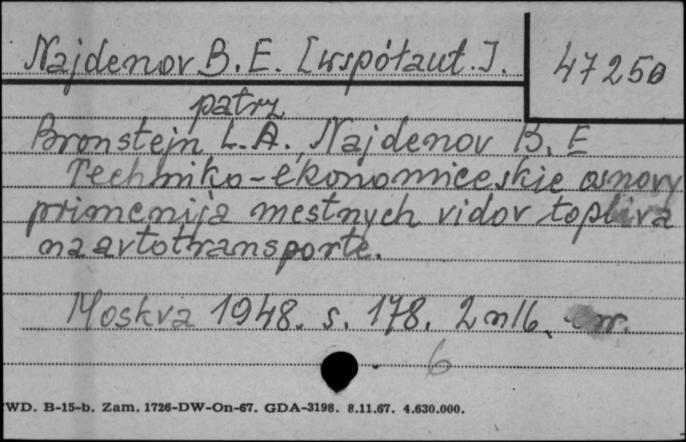 Najdenov B. E. [współaut.].
47250
patrz
Bronstejn L. A., Najdenov B. E
Techniko-ekonomiceskie osnovy
primenenija mestnych vidov topliva
na avtotransporte.
Moskva 1948. s. 178.
6
WD. B-15-b. Zam. 1726-DW-On-67. GDA-3198. 8.11.67. 4.630.000.